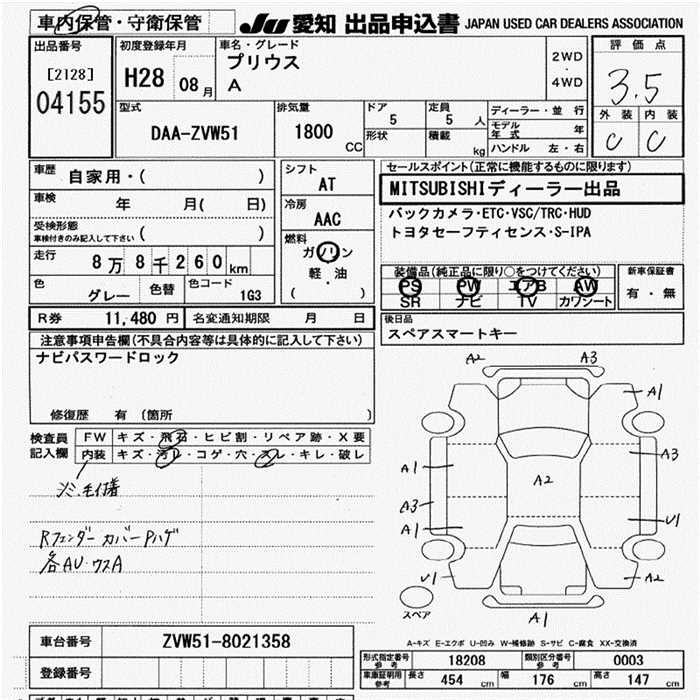 車内保管・守衛保管
JU 愛知 出品申込書 JAPAN USED CAR DEALERS ASSOCIATION
出品番号
[2128]
04155
初度登録年月
H28 08月
車名・グレード
プリウス
A
2WD
・
4WD
評価点
3.5
外装 内装
C C
型式
DAA-ZVW51
排気量
1800 CC
ドア
5
定員
5 人
形状
積載 kg
ディーラー・並行
モデル年式 年
ハンドル 左・右
車歴
自家用・( )
車検
年 月( 日)
受検形態
車検付きのみ記入して下さい ( )
走行
8万8千260km
色
グレー
色替
色コード
1G3
シフト
AT
冷房
AAC
燃料
ガソリン
軽・油
( )
セールスポイント(正常に機能するものに限ります)
MITSUBISHIディーラー出品
バックカメラ・ETC・VSC/TRC・HUD
トヨタセーフティセンス・S-IPA
装備品(純正品に限り○をつけてください)
PS PW エアB AW
SR ナビ TV カワシート
新車保証書
有・無
R券 11,480円 名変通知期限 月 日
後日品
スペアスマートキー
注意事項申告欄(不具合内容等は具体的に記入して下さい)
ナビパスワードロック
修復歴 有 〔箇所 〕
検査員
記入欄
FW キズ・飛石・ヒビ割・リペア跡・X要
内装 キズ・汚レ・コゲ・穴・スレ・キレ・破レ
シミ・毛付着
Rフェンダーカバー Pハゲ
各AU・ワスA
A2 A3
A1
A1 A3
A2
A3
A1 U1
U1 A2
スペア
A1
A-キズ E-エクボ U-凹み W-補修跡 S-サビ C-腐食 XX-交換済
車台番号 ZVW51-8021358
登録番号
型式指定番号
参考
18208
類別区分番号
参考
0003
車庫証明用
参考
長さ 454 cm 幅 176 cm 高さ 147 cm